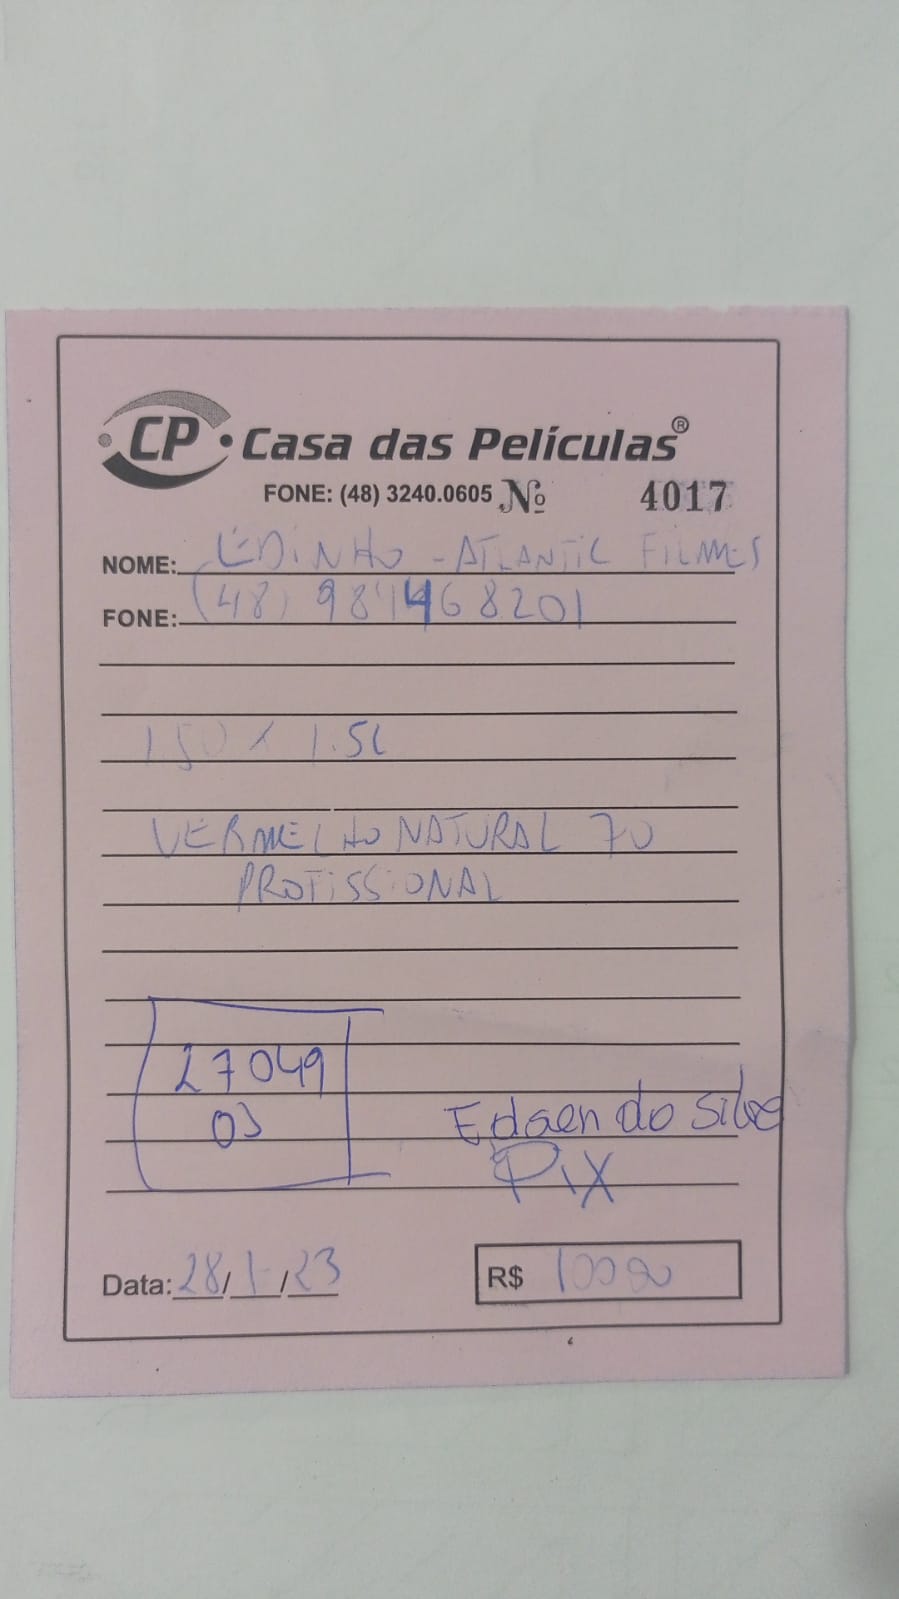 CP Casa das Películas®
FONE: (48) 3240.0605 Nº 4017
NOME: EDINHO - ATLANTIC FILMES
FONE: (48) 981468201
1.50 X 1.50
VERMELHO NATURAL 70
PROFISSIONAL
27049
03
do Silva
PIX
Data: 28/1/23 R$ 10000